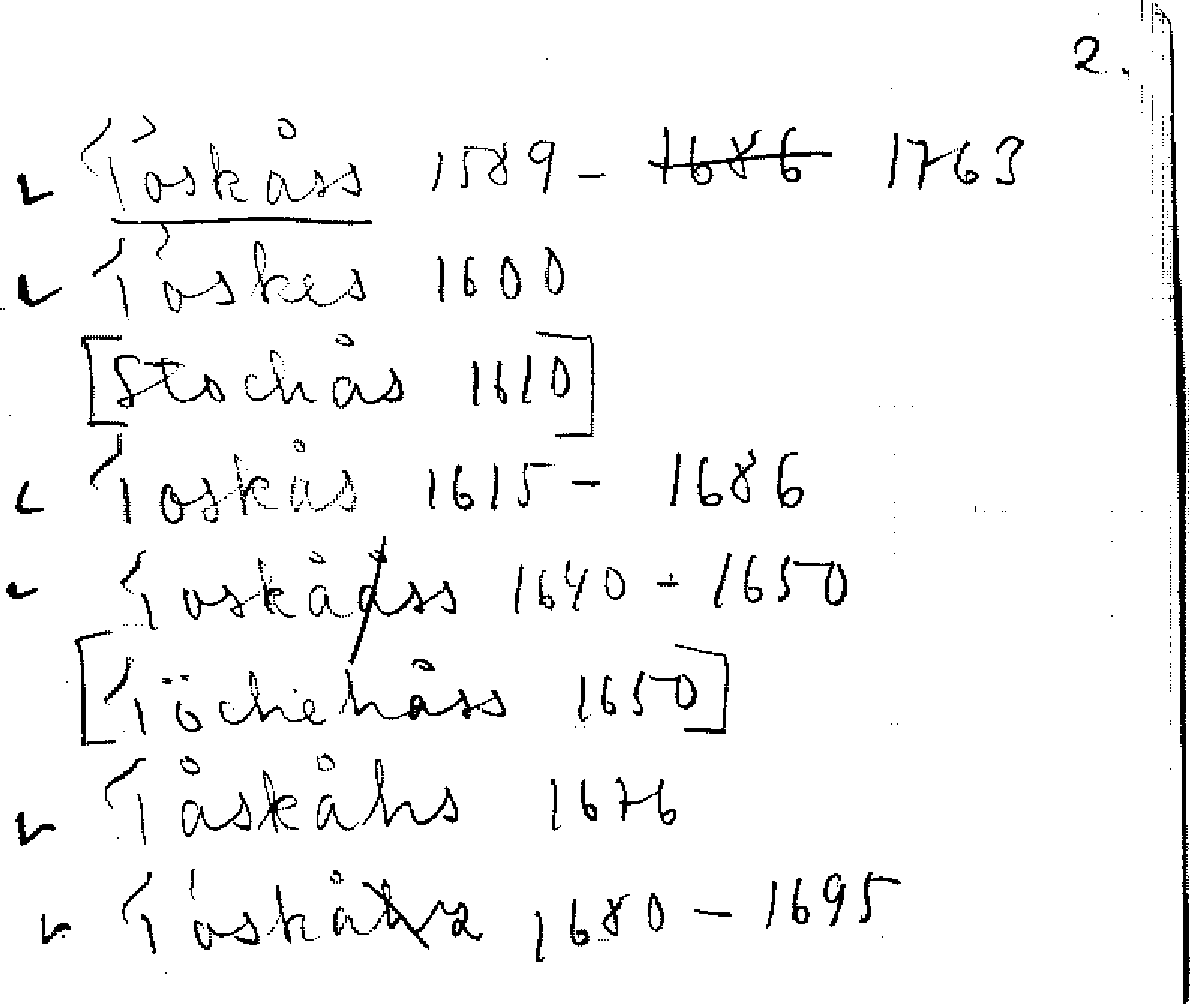 2.
Toskåss 1589 - 1686 1763
Toskes 1600
[Stochås 1610]
Toskås 1615 - 1686
Toskååss 1640 - 1650
[Töchehåss 1650]
Tåskåhs 1676
1680 - 1695